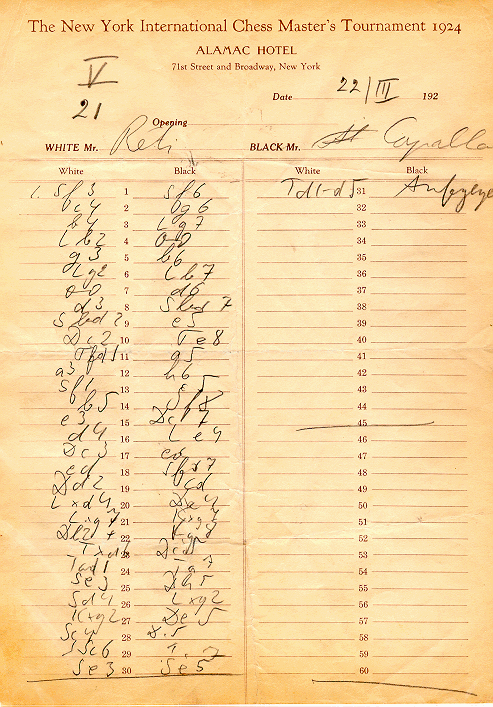 The New York International Chess Master's Tournament 1924
ALAMAC HOTEL
71st Street and Broadway, New York
V
21
Date 22/III 192
Opening
WHITE Mr. Reti BLACK Mr.
White Black White Black
1. Sf3 1 Sf6 Td1-d5 31
c4 2 g6 32
b4 3 Lg7 33
Lb2 4 0-0 34
g3 5 b6 35
Lg2 6 Lb7 36
0-0 7 d6 37
d3 8 Sbd7 38
Sbd2 9 e5 39
Dc2 10 Te8 40
Tfd1 11 a5 41
a3 12 h6 42
Sf1 13 c5 43
b5 14 44
e3 15 45
d4 16 Le4 46
Dc3 17 ed 47
ed 18 48
Dd2 19 cd 49
Lxd4 20 50
Lxg7 21 Kxg7 51
22 Kg8 52
23 53
Tad1 24 54
Se3 25 Dh5 55
Sd4 26 Lxg2 56
Kxg2 27 De5 57
Sc4 28 58
Sc6 29 59
Se3 30 Se5 60